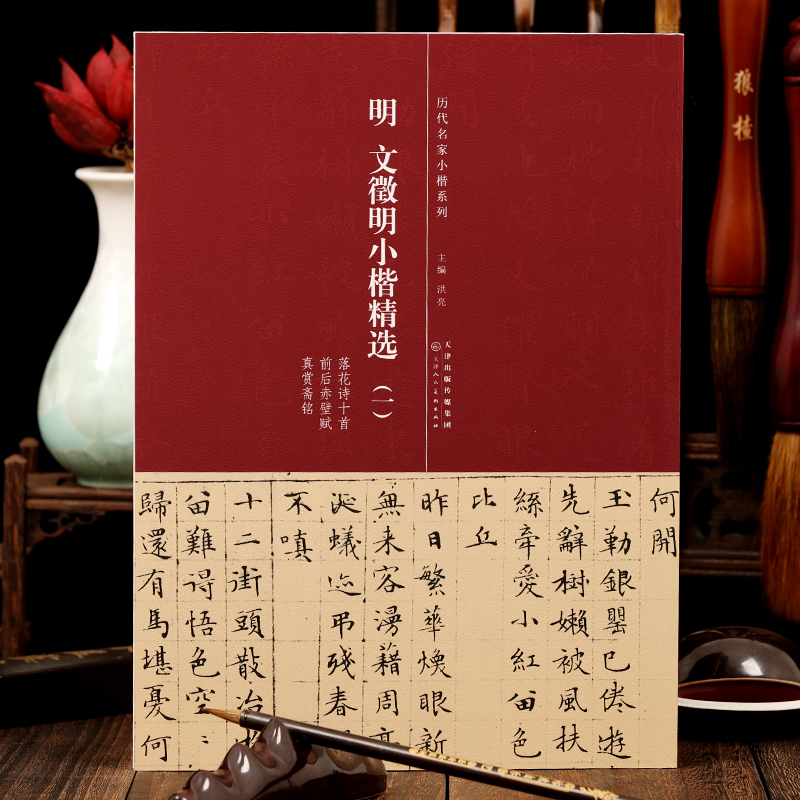 历代名家小楷系列
主编 洪亮
天津出版传媒集团
天津人民美术出版社
明 文徵明小楷精选（一）
落花诗十首
前后赤壁赋
真赏斋铭
何開
玉勒銀罌已倦遊
先辭樹嬾被風扶
絲牽愛小紅留色
比丘
昨日繁華煥眼新
無来客漫藉周
涎蟻迹弔殘春
不嗔
十二街頭散冶
留難得悟色空〻
歸還有馬堪憂何
狼